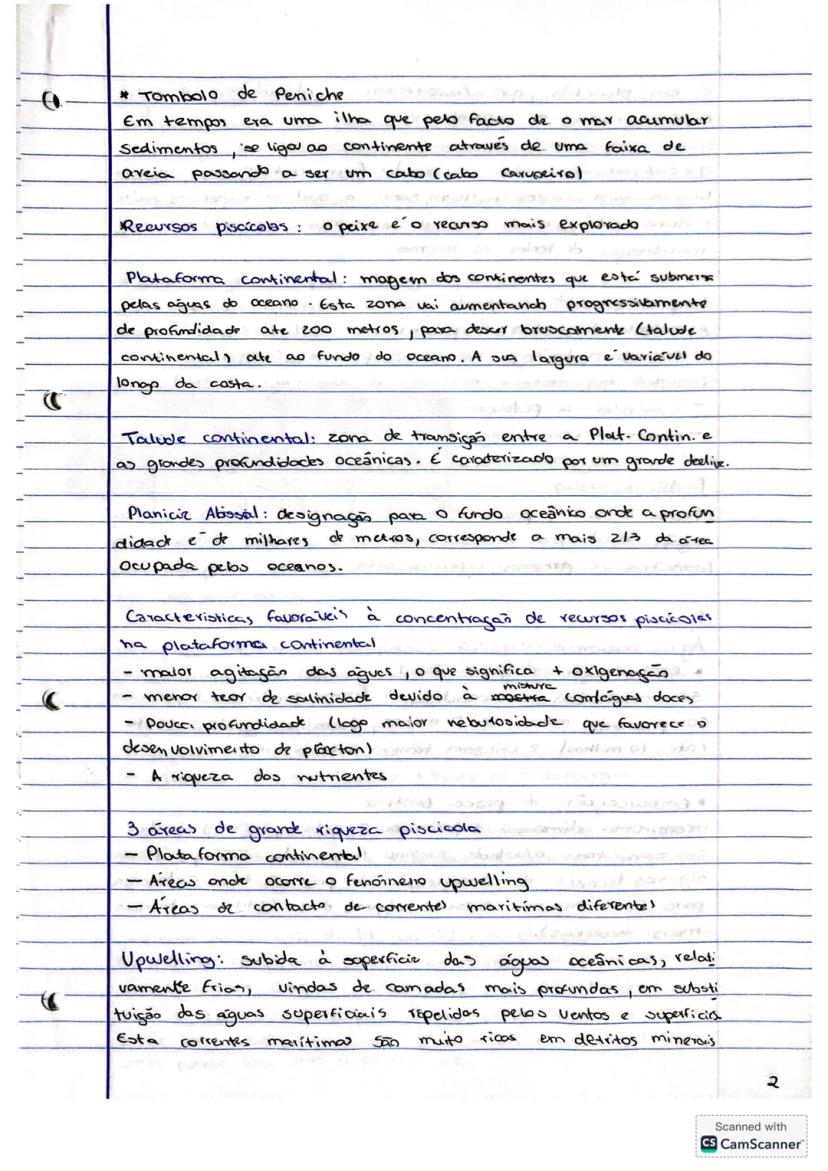 * Tombolo de Peniche
Em tempos era uma ilha que pelo facto de o mar acumular
sedimentos, se ligou ao continente através de uma faixa de
areia passando a ser um cabo (cabo Carvoeiro)
*Recursos piscícolas: o peixe é o recurso mais explorado
Plataforma continental: magem dos continentes que está submersa
pelas águas do oceano. Esta zona vai aumentando progressivamente
de profundidade ate 200 metros, para descer bruscamente (talude
continental) ate ao fundo do oceano. A sua largura é variável do
longo da costa.
Talude continental: zona de transição entre a Plat. Contin. e
as grandes profundidades oceânicas. É caraterizado por um grande declive.
Planicie Abissal: designação para o fundo oceânico onde a profun
didade é de milhares de metros, corresponde a mais 2/3 da área
ocupada pelos oceanos.
Caracteristicas favoráveis à concentração de recursos piscícolas
na plataforma continental
- maior agitação das águas, o que significa + oxigenação
- menor teor de salinidade devido à mistura com águas doces
- Pouca profundidade (logo maior nebulosidade que favorece o
desenvolvimento de plâcton)
- A riqueza dos nutrientes
3 áreas de grande riqueza piscicola
- Plataforma continental
- Áreas onde ocorre o fenómeno upwelling
- Áreas de contacto de correntes maritimas diferentes
Upwelling: subida à superficie das águas oceânicas, relati
vamente frias, vindas de camadas mais profundas, em substi
tuição das águas superficiais repelidas pelos ventos e superficies
Esta correntes maritimas são muito ricas em detritos minerais
2
Scanned with
CS CamScanner